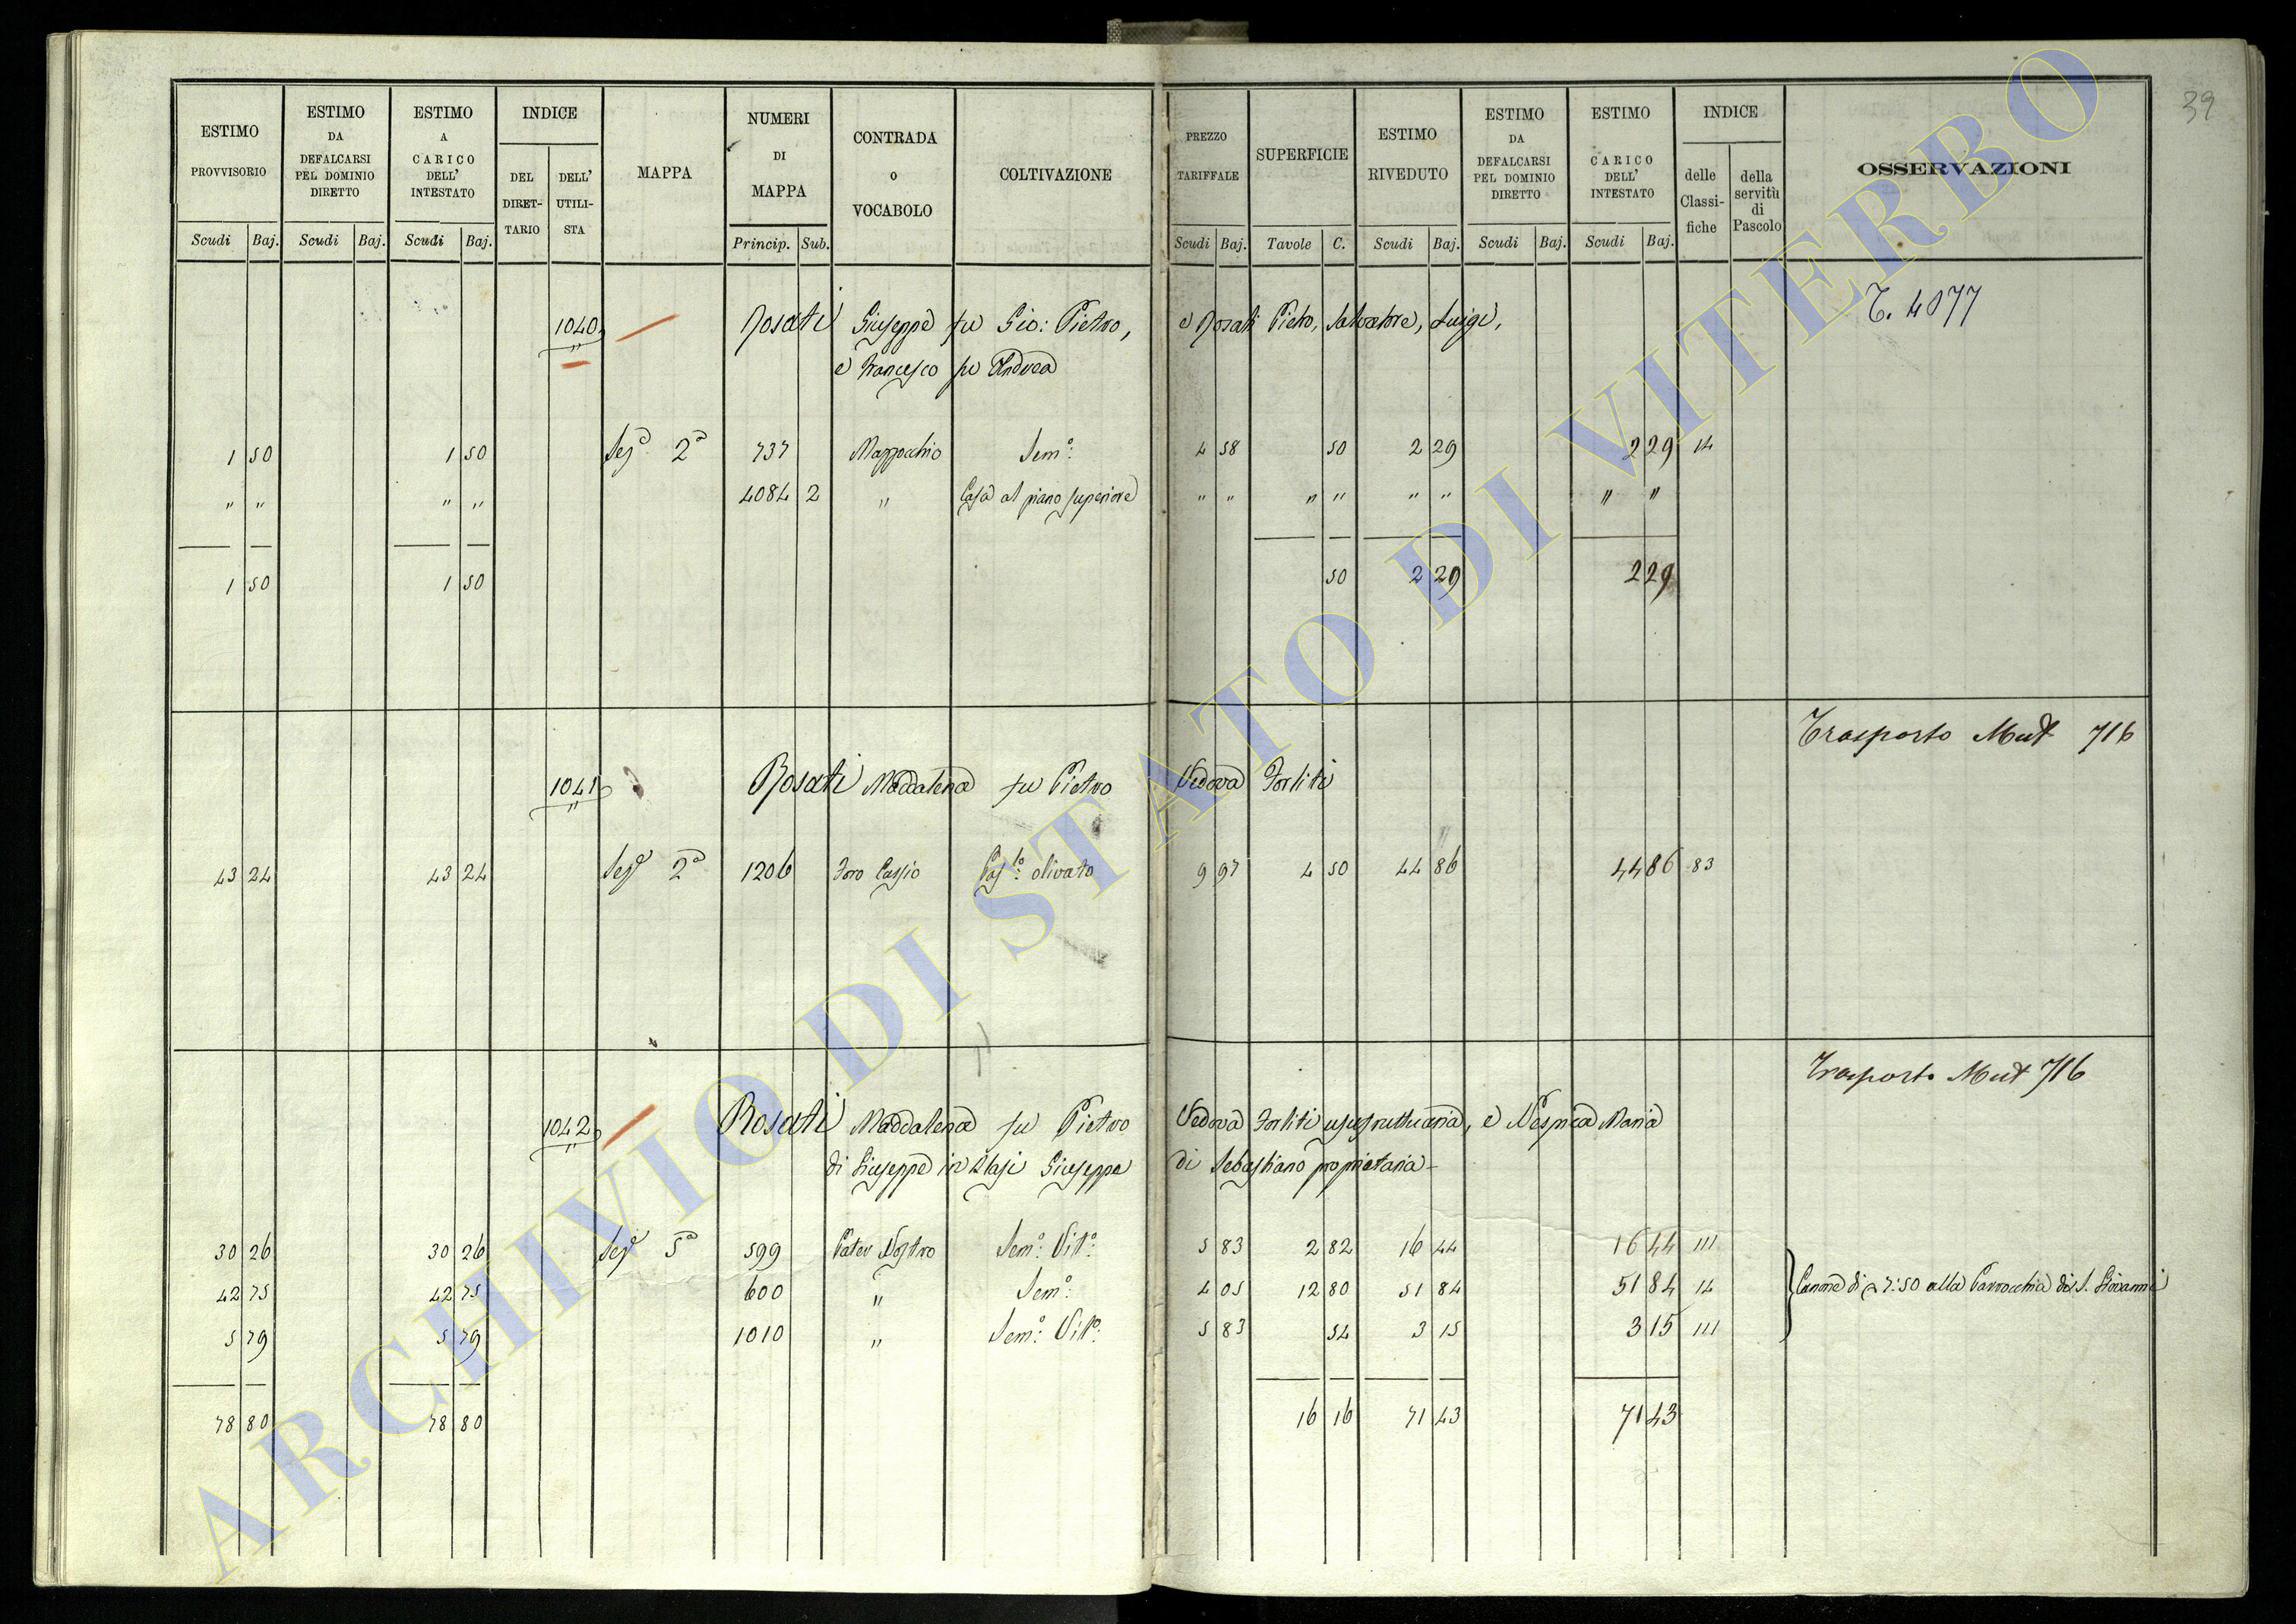 39
ESTIMO PROVVISORIO Scudi Baj.
ESTIMO DA DEFALCARSI PEL DOMINIO DIRETTO Scudi Baj.
ESTIMO A CARICO DELL' INTESTATO Scudi Baj.
INDICE DEL DIRET-TARIO DELL' UTILI-STA
MAPPA
NUMERI DI MAPPA Princip. Sub.
CONTRADA o VOCABOLO
COLTIVAZIONE
PREZZO TARIFFALE Scudi Baj.
SUPERFICIE Tavole C.
ESTIMO RIVEDUTO Scudi Baj.
ESTIMO DA DEFALCARSI PEL DOMINIO DIRETTO Scudi Baj.
ESTIMO A CARICO DELL' INTESTATO Scudi Baj.
INDICE delle Classi-fiche della servitù di Pascolo
OSSERVAZIONI
1040 Rosati Giuseppe fu Gio: Pietro, e Rosati Pietro, Salvatore, Luigi, T. 4077
e Francesco fu Andrea
1 50 1 50 Sez.a 2a 737 Mazzocchio Sem.o: 4 58 50 2 29 2 29 14
" " " " 4084 2 " Casa al piano superiore " " " " " " " "
1 50 1 50 50 2 29 2 29
Trasporto Mut 716
1041 Rosati Maddalena fu Pietro Vedova Forliti
43 24 43 24 Sez.a 2a 1206 Foro Cassio Pas.o: olivato 9 97 4 50 44 86 44 86 83
Trasporto Mut 716
1042 Rosati Maddalena fu Pietro Vedova Forliti usufruttuaria, e Nespica Maria
di Giuseppe in Stasi Giuseppe di Sebastiano proprietaria
30 26 30 26 Sez.a 5a 599 Pater Nostro Sem.o: Vit.o: 5 83 2 82 16 44 16 44 111
42 75 42 75 600 " Sem.o: 4 05 12 80 51 84 51 84 14 Canone di 7:50 alla Parrocchia di S. Giovanni
5 79 5 79 1010 " Sem.o: Vit.o: 5 83 54 3 15 3 15 111
78 80 78 80 16 16 71 43 71 43
ARCHIVIO DI STATO DI VITERBO